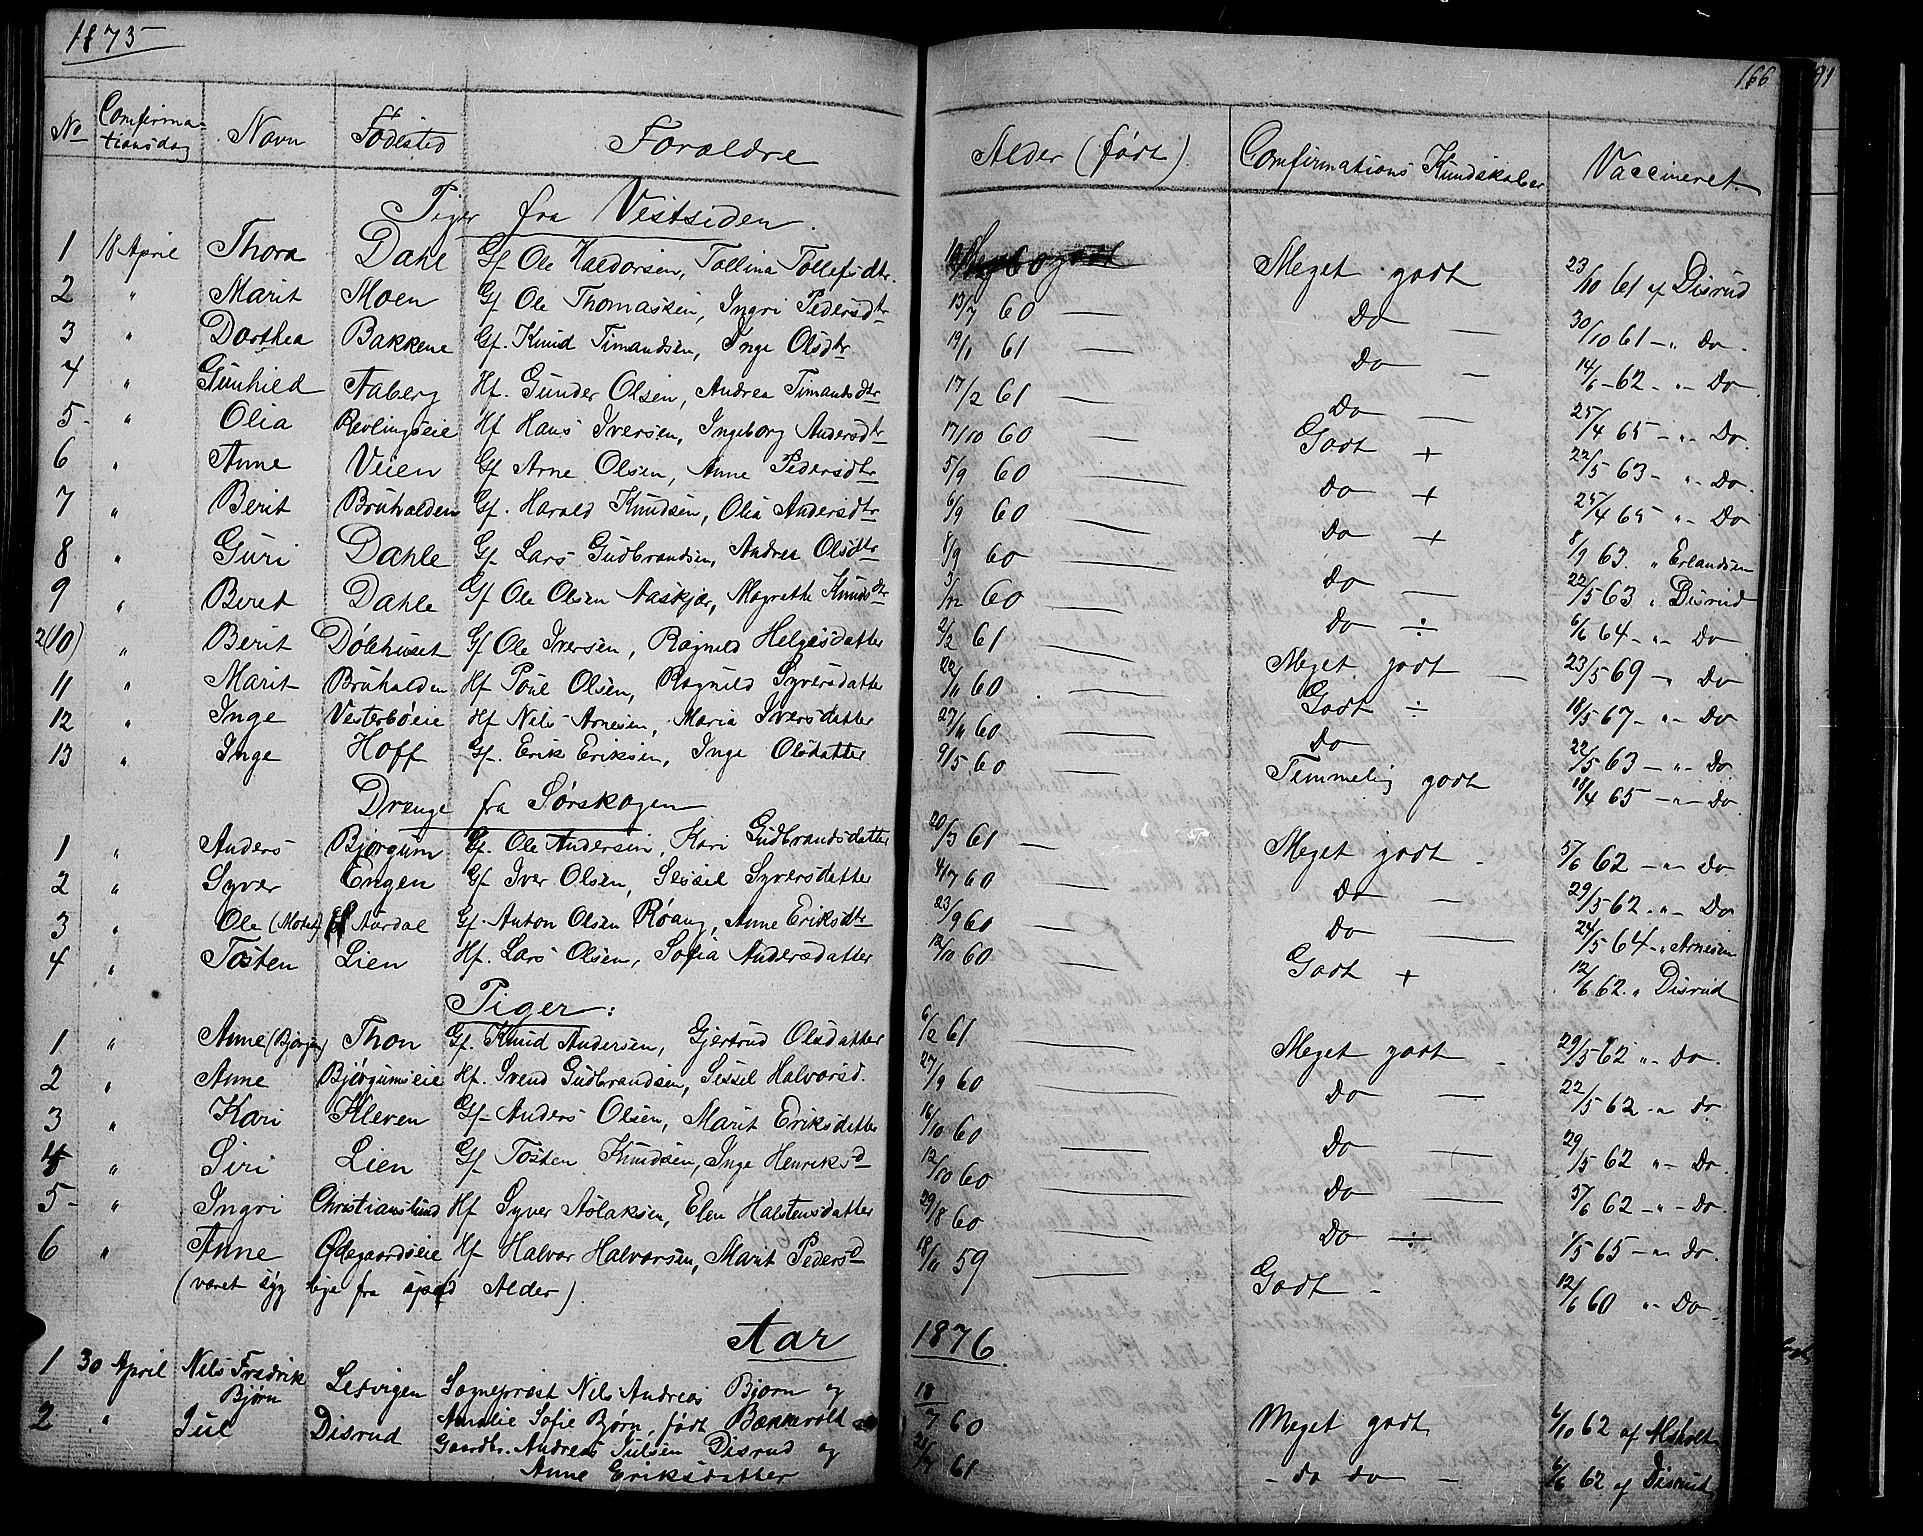 1875
166
91
No Confirmationsdag Navn Födested Foraeldre Alder (födt) Confirmations Kundskaber Vaccineret
Piger fra Vestsiden.
1 18 April Thora Dahl Gf Ole Haldorsen, Tollina Tollefsdtr. Meget godt 23/10 61 af Disrud
2 " Marit Moen Gf Ole Thomassen, Ingri Pedersdtr 13/7 60 — Do — 30/10 61 - " Do.
3 " Dorthea Bakkene Gf. Knud Timandsen, Inge Olsdtr 19/1 61 — Do — 14/6 - 62 - " - Do
4 " Gunhild Aaberg Hf. Gunder Olsen, Andrea Timandsdtr 17/2 61 — Do — 25/4 65 - " - Do
5 - " Olia Revlingseie Hf Hans Iversen, Ingeborg Andersdtr 17/10 60 — Godt + 22/5 63 - " - Do.
6 " Anne Veien Gf Arne Olsen, Anne Pedersdtr 5/9 60 — Do + 25/4 65 " - Do
7 " Berit Bruhalden Gf. Harald Knudsen, Olia Andersdtr 6/9 60 — Do + 8/9 63. " Erlandsen
8 " Guri Dahle Gf Lars Gudbrandsen, Andrea Olsdtr 8/9 60 — Do — 22/5 63 " Disrud
9 " Beret Dahle Gf Ole Olsen Aaskjær, Magrethe Knudsdtr 3/12 60 — Do ÷ 6/6 64 - " - Do
2(10) " Berit Dölehuset Gf Ole Iversen, Ragnild Helgesdatter 2/2 61 — Meget godt — 23/5 69 - " Do
11 " Marit Bruhalden Hf Poul Olsen, Ragnild Syversdatter 22/11 60. — Godt ÷ 18/5 67 - " - Do
12 " Inge Vesterböeie Hf Nils Arnesen, Maria Iversdatter 27/11 60 — Do 22/5 63 - " - Do
13 " Inge Hoff Gf. Erik Eriksen, Inge Olsdatter 9/5 60 — Temmelig godt 18/4 65 - " - Do
Drenge fra Sörskogen
1 " Anders Björgum Gf. Ole Andersen, Kari Gudbrandsdatter 20/3 61 — Meget godt - 5/6 62 - " - Do
2 " Syver Engen Gf Iver Olsen, Sessel Syversdatter 4/7 60 — Do — 29/5 62 - " - Do
3 " Ole Aardal Gf. Anton Olsen Röang, Anne Eriksdtr 23/9 60 — Do — 24/5 64 - " Arnesen
4 " Tosten Lien Hf. Lars Olsen, Sofia Andersdatter 12/10 60 — Godt + 12/6 62. " Disrud
Piger:
1 " Anne Thon Gf. Knud Andersen, Gjertrud Olsdatter 6/2 61 Meget godt - 29/5 62 " - Do.
2 " Anne Björgumseie Hf. Svend Gudbrandsen, Sessel Halvorsd. 27/9 60 — Do — 22/5 62 - " Do
3 " Kari Kleven Gf - Anders Olsen, Marit Eriksdatter 16/10 60 — Do — 29/5 62 " - Do.
4 " Siri Lien Gf Tosten Knudsen, Inge Henriksd 12/10 60 — Do — 5/6 62 - " - Do.
5 - " Ingri Christianslund Hf Syver Aslaksen, Elen Halstensdatter 29/8 60 — Do ÷ 1/5 65 - " Do.
6 " Anne Ødegaardseie Hf Halvor Halvorsen, Marit Pedersd 18/11 59 — Godt - 12/6 60 " - Do
(været syg lige fra spæd Alder).
Aar 1876
1 30 April Nils Fredrik Bjørn Lesvigen Sogneprest Nils Andreas Bjørn og
Amalie Sofie Bjørn, født Bækkevold 18/7 60 Meget godt 6/10 62 af Alsholt
2 " Jul Disrud Gaardbr. Andreas Julsen Disrud og
Anne Eriksdatter 21/7 61 - do do - 6/6 62 af Disrud